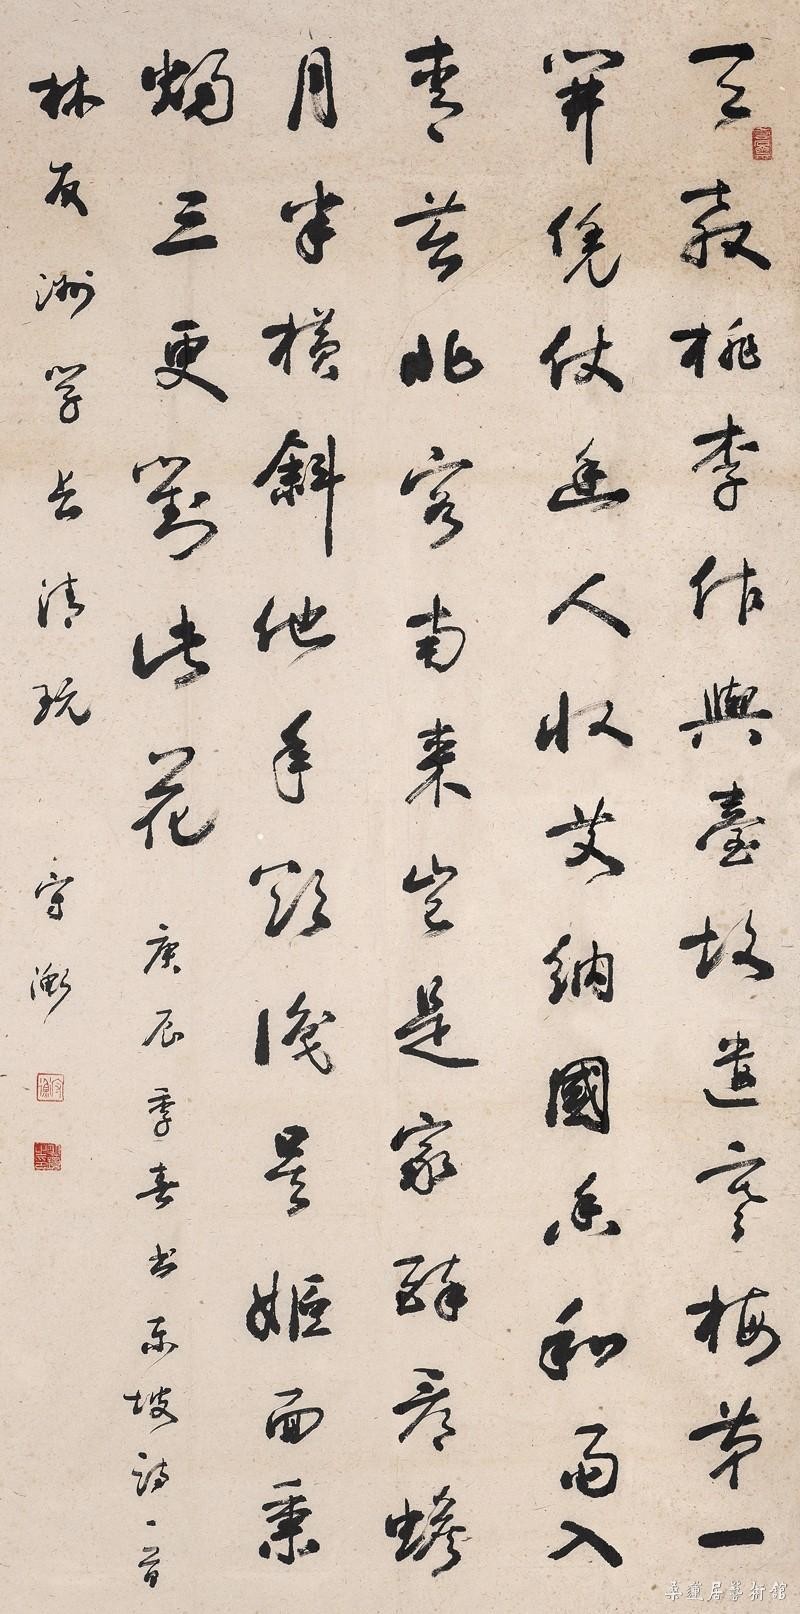 天教桃李作輿臺故遣寒梅第一
開凭仗幽人收艾納國香和雨入
青苔北客南来岂是家醉看蟾
月半橫斜他年欲識吴姬面秉
燭三更對此花 庚辰季春書東坡詩一首
林友洲學長清玩 守
居藝術館